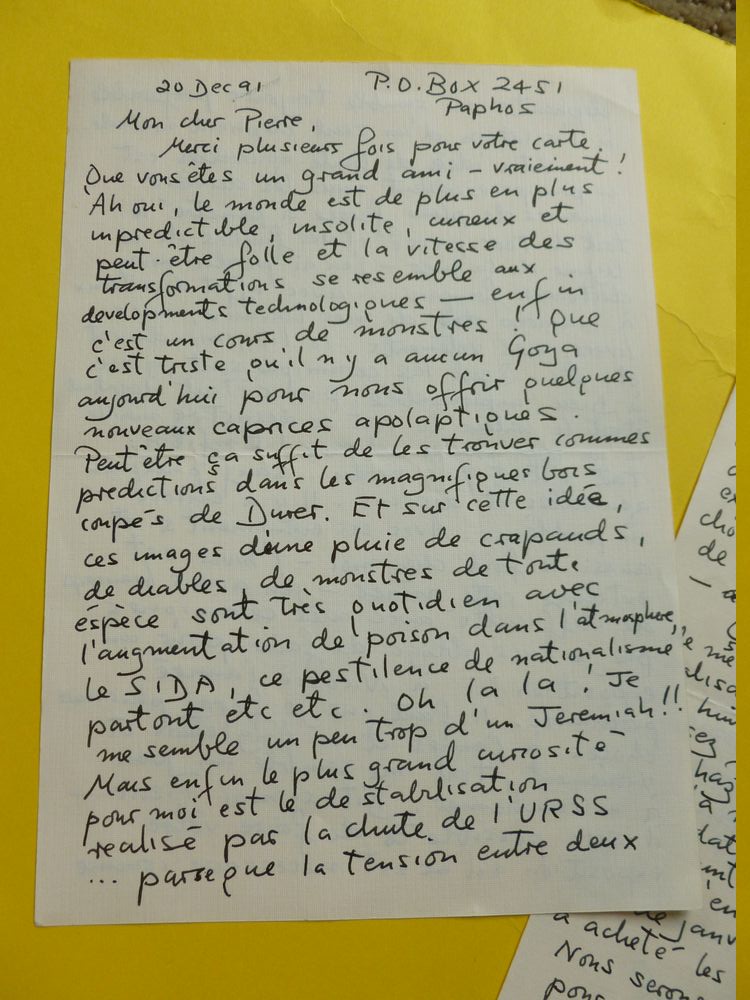 20 Dec 91 P.O. Box 2451
Paphos
Mon cher Pierre,
Merci plusieurs fois pour votre carte.
Que vous êtes un grand ami – vraiement!
Ah oui, le monde est de plus en plus
impredictible, insolite, curieux et
peut-être folle et la vitesse des
transformations se resemble aux
developments technologiques — enfin
c'est un cours de monstres! Que
c'est triste qu'il n'y a aucun Goya
aujourd'hui pour nous offrir quelques
nouveaux caprices apolaptiques.
Peut être ça suffit de les trouver commes
predictions dans les magnifiques bois
coupés de Durer. Et sur cette idée,
ces images d'une pluie de crapauds,
de diables, de monstres de toute
éspèce sont très quotidien avec
l'augmentation de poison dans l'atmosphere,
le SIDA, ce pestilence de nationalisme
partout etc etc. Oh la la! Je
me semble un peu trop d'un Jeremiah!!
Mais enfin le plus grand curiosité
pour moi est le destabilisation
realisé par la chute de l'URSS
... parseque la tension entre deux
de
a acheté les
Nous seron
pour